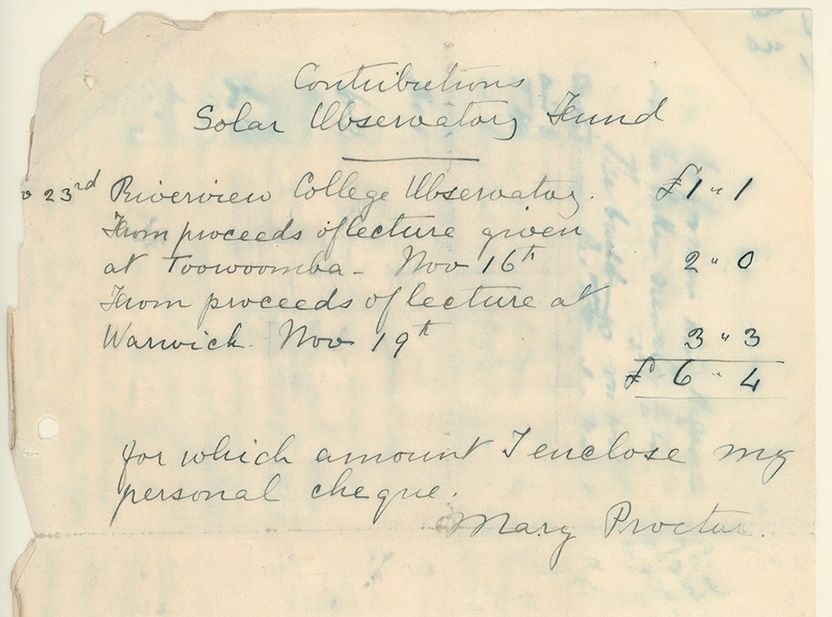 Contributions
Solar Observatory Fund
23rd Riverview College Observatory. £1 " 1
From proceeds of lecture given
at Toowoomba - Nov 16th 2 " 0
From proceeds of lecture at
Warwick. Nov 19th 3 " 3
£ 6 " 4
for which amount I enclose my
personal cheque.
Mary Proctor.